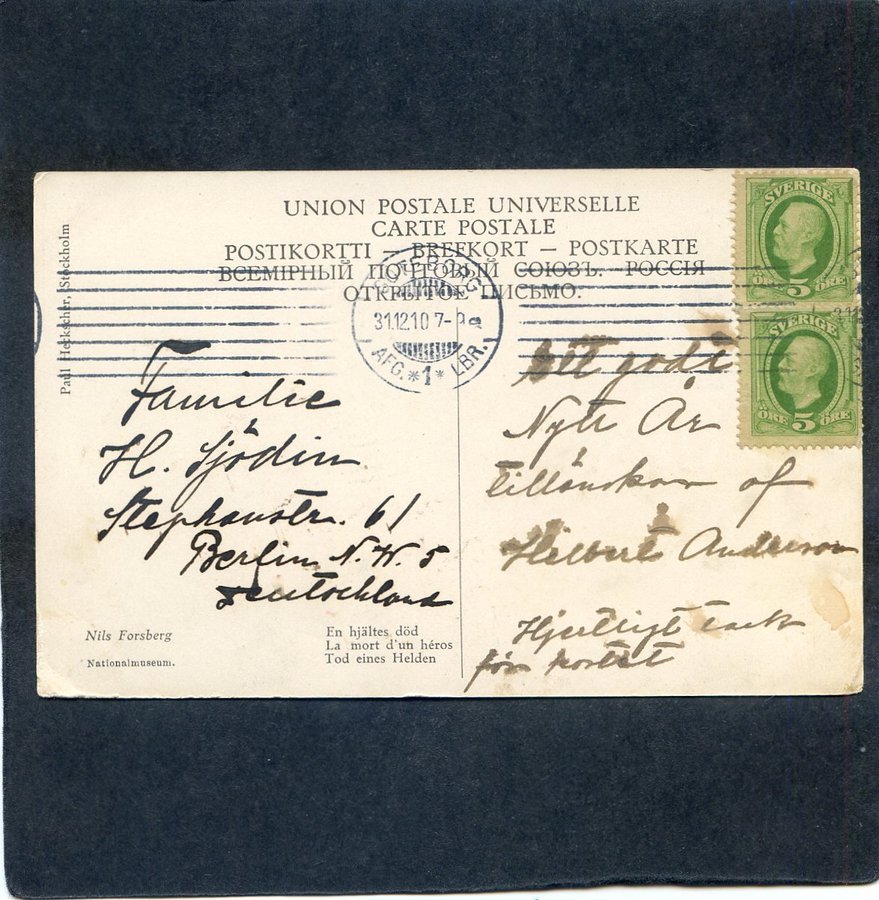 UNION POSTALE UNIVERSELLE
CARTE POSTALE
POSTIKORTTI — BREFKORT — POSTKARTE
ВСЕМІРНЫЙ ПОЧТОВЫЙ СОЮЗЪ. РОССІЯ
ОТКРЫТОЕ ПИСЬМО.
Paul Heckscher, Stockholm
GÖTEBORG
31.12.10 7-
AFG. *1* LBR.
SVERIGE
ÖRE 5 ÖRE
SVERIGE
ÖRE 5 ÖRE
Familie
H. Sjödin
Stephanstr. 61
Berlin N.W. 5
Deutschland
Ett godt
Nytt År
tillönskar af
Hilbert Anderson
Hjertligt tack
för kortet
Nils Forsberg
Nationalmuseum.
En hjältes död
La mort d'un héros
Tod eines Helden